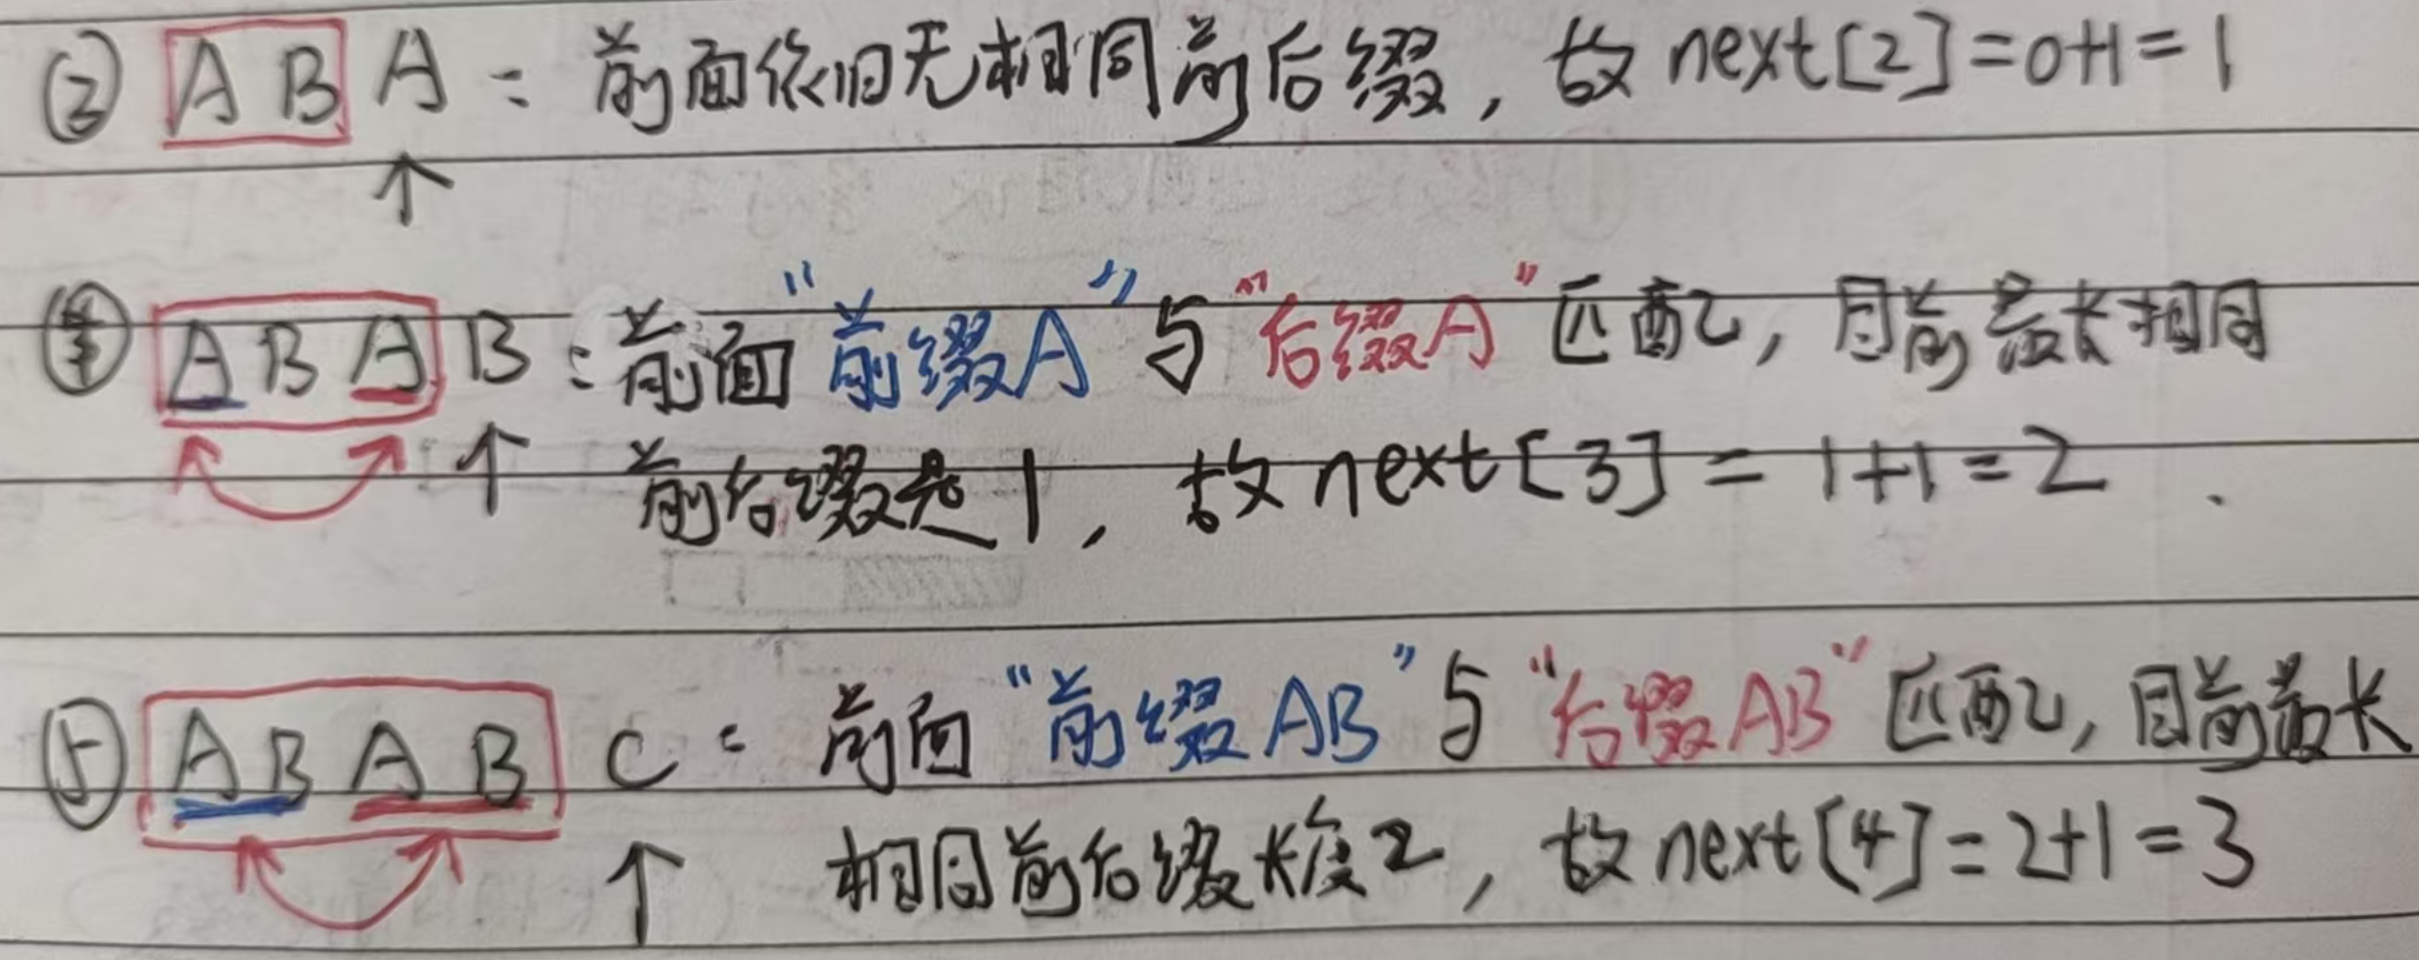 ③ A B A： 前面依旧无相同前后缀，故 next[2]=0+1=1
④ A B A B：前面"前缀A"与"后缀A"匹配，目前最长相同
前后缀是1，故next[3]=1+1=2.
⑤ A B A B C：前面"前缀AB"与"后缀AB"匹配，目前最长
相同前后缀长度2，故next[4]=2+1=3